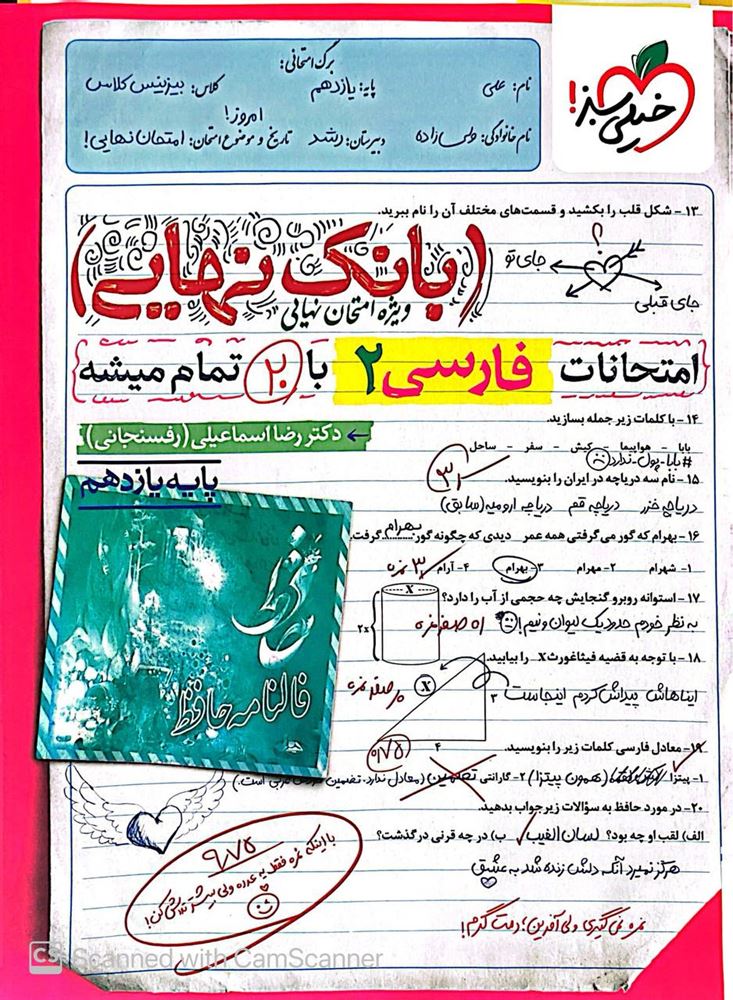 خیلی سبز!
برگ امتحانی:
نام: علی پایه: یازدهم کلاس: بیزینس کلاس
امروز!
نام خانوادگی: ولی زاده دبیرستان: رشد تاریخ و موضوع امتحان: امتحان نهایی!
۱۳- شکل قلب را بکشید و قسمت‌های مختلف آن را نام ببرید.
؟
جای تو
جای قبلی
(بانک نهایی)
ویژه امتحان نهایی
امتحانات فارسی ۲ با ۲۰ تمام میشه
۱۴- با کلمات زیر جمله بسازید.
دکتر رضا اسماعیلی (رفسنجانی)
بابا - هواپیما - کیش - سفر - ساحل
#بابا-پول-ندارد
پایه یازدهم
۱۵- نام سه دریاچه در ایران را بنویسید.
دریاچه خزر دریاچه قم دریاچه ارومیه (سابق)
۱۶- بهرام که گور می‌گرفتی همه عمر دیدی که چگونه گور بهرام گرفت.
۱- شهرام ۲- مهرام ۳- بهرام ۴- آرام
۱۷- استوانه روبرو گنجایش چه حجمی از آب را دارد؟
X
۲x
به نظر خودم حدود یک لیوان و نیم!
۱۸- با توجه به قضیه فیثاغورث X را بیابید.
ایناهاش پیداش کردم اینجاست
X
۳
۴
فالنامه حافظ
۱۹- معادل فارسی کلمات زیر را بنویسید.
۰/۷۵
۱- پیتزا (همون پیتزا) ۲- گارانتی تضمین (معادل ندارد. تضمین
۲۰- در مورد حافظ به سؤالات زیر جواب بدهید.
الف) لقب او چه بود؟ لسان الغیب ب) در چه قرنی درگذشت؟
هرگز نمیرد آنکه دلش زنده شد به عشق
۹/۷۵
با اینکه نمره فقط یه عدده ولی بیشتر تلاش کن!
نمره نمی‌گیری ولی آفرین؛ دمت گرم!
CS Scanned with CamScanner